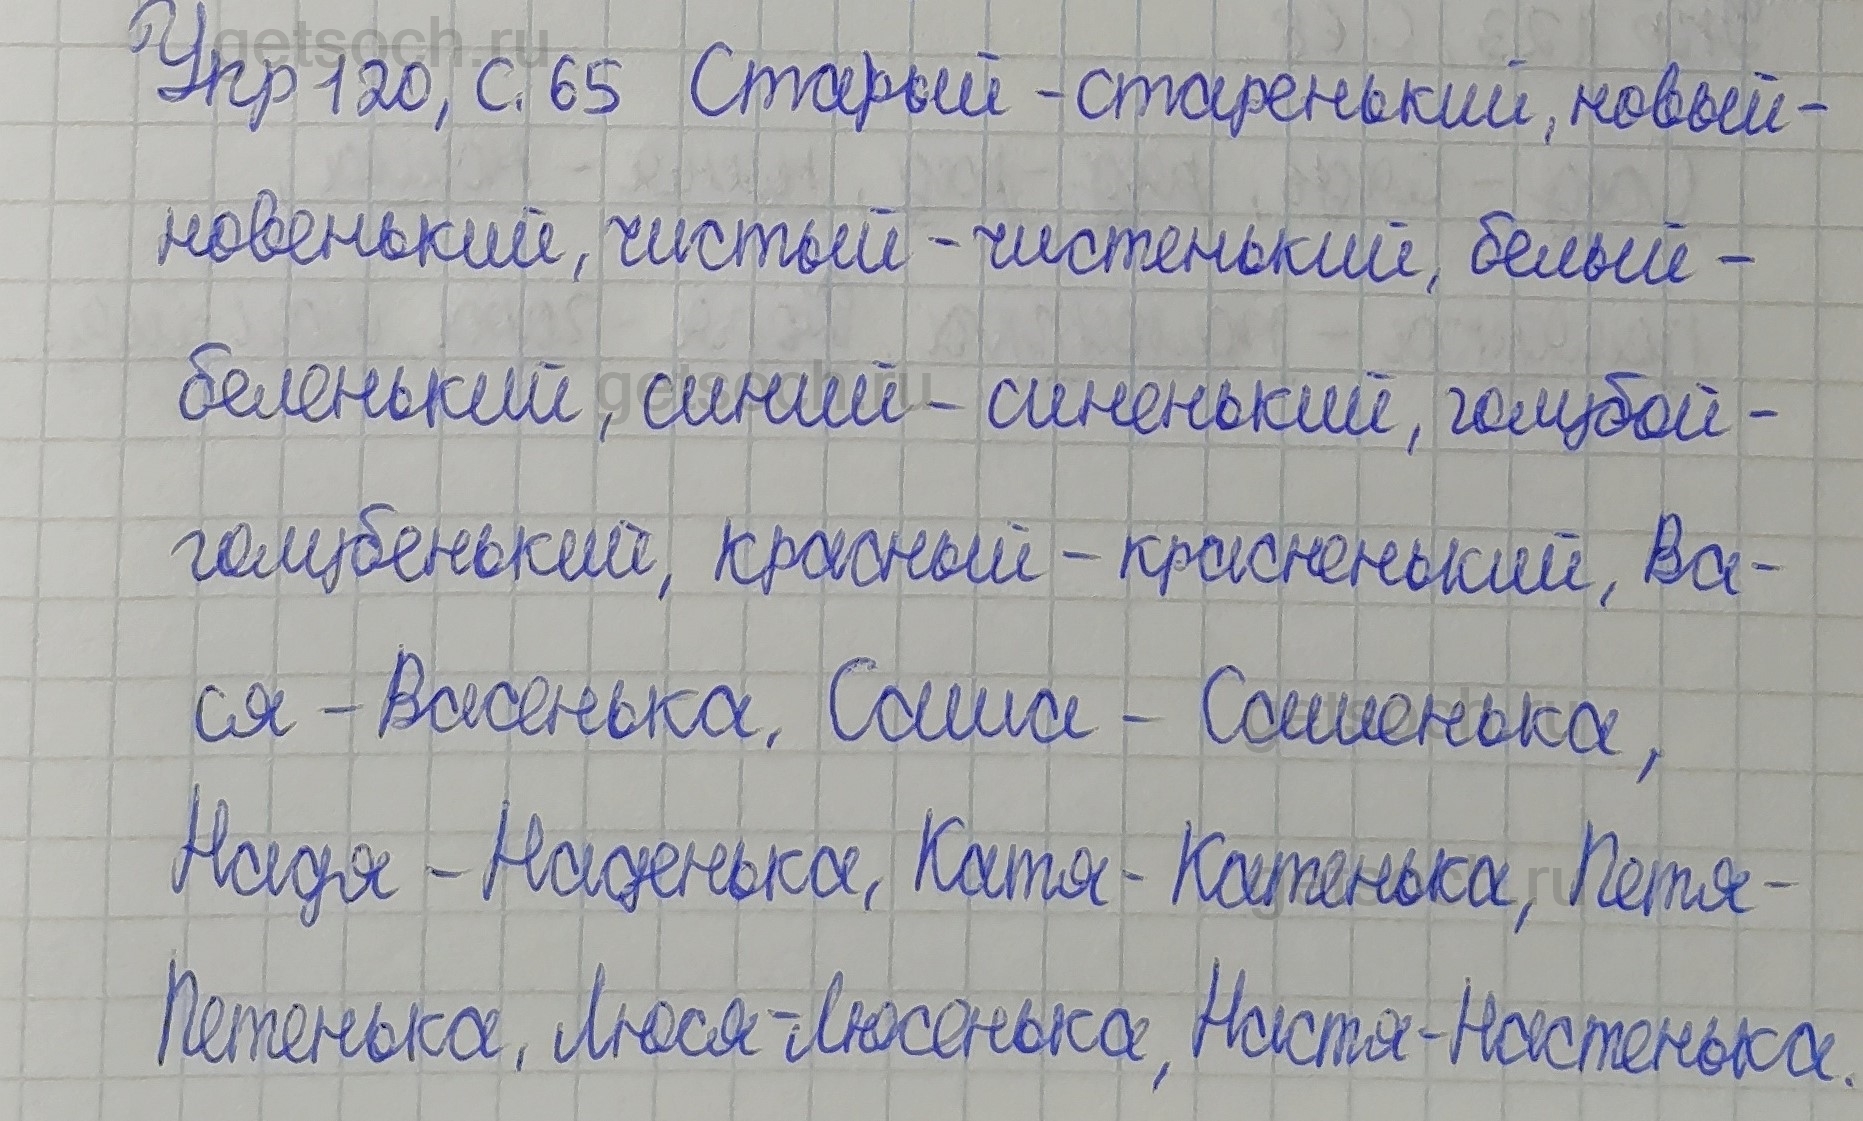 Упр 120, с. 65 Старый - старенький, новый -
новенький, чистый - чистенький, белый -
беленький, синий - синенький, голубой -
голубенький, красный - красненький, Ва-
ся - Васенька, Саша - Сашенька,
Надя - Наденька, Катя - Катенька, Петя -
Петенька, Люся - Люсенька, Настя - Настенька.
getsoch.ru
getsoch.ru
getsoch.ru
getsoch.ru